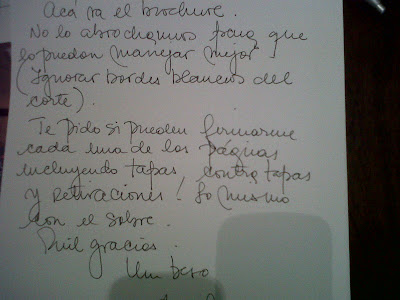 Acá va el brochure.
No lo abrochamos para que
lo puedan manejar mejor
(Ignorar bordes blancos del
corte).
Te pido si pueden firmarme
cada una de las páginas
incluyendo tapas contratapas
y retiraciones! Lo mismo
con el sobre.
Mil gracias.
Un beso